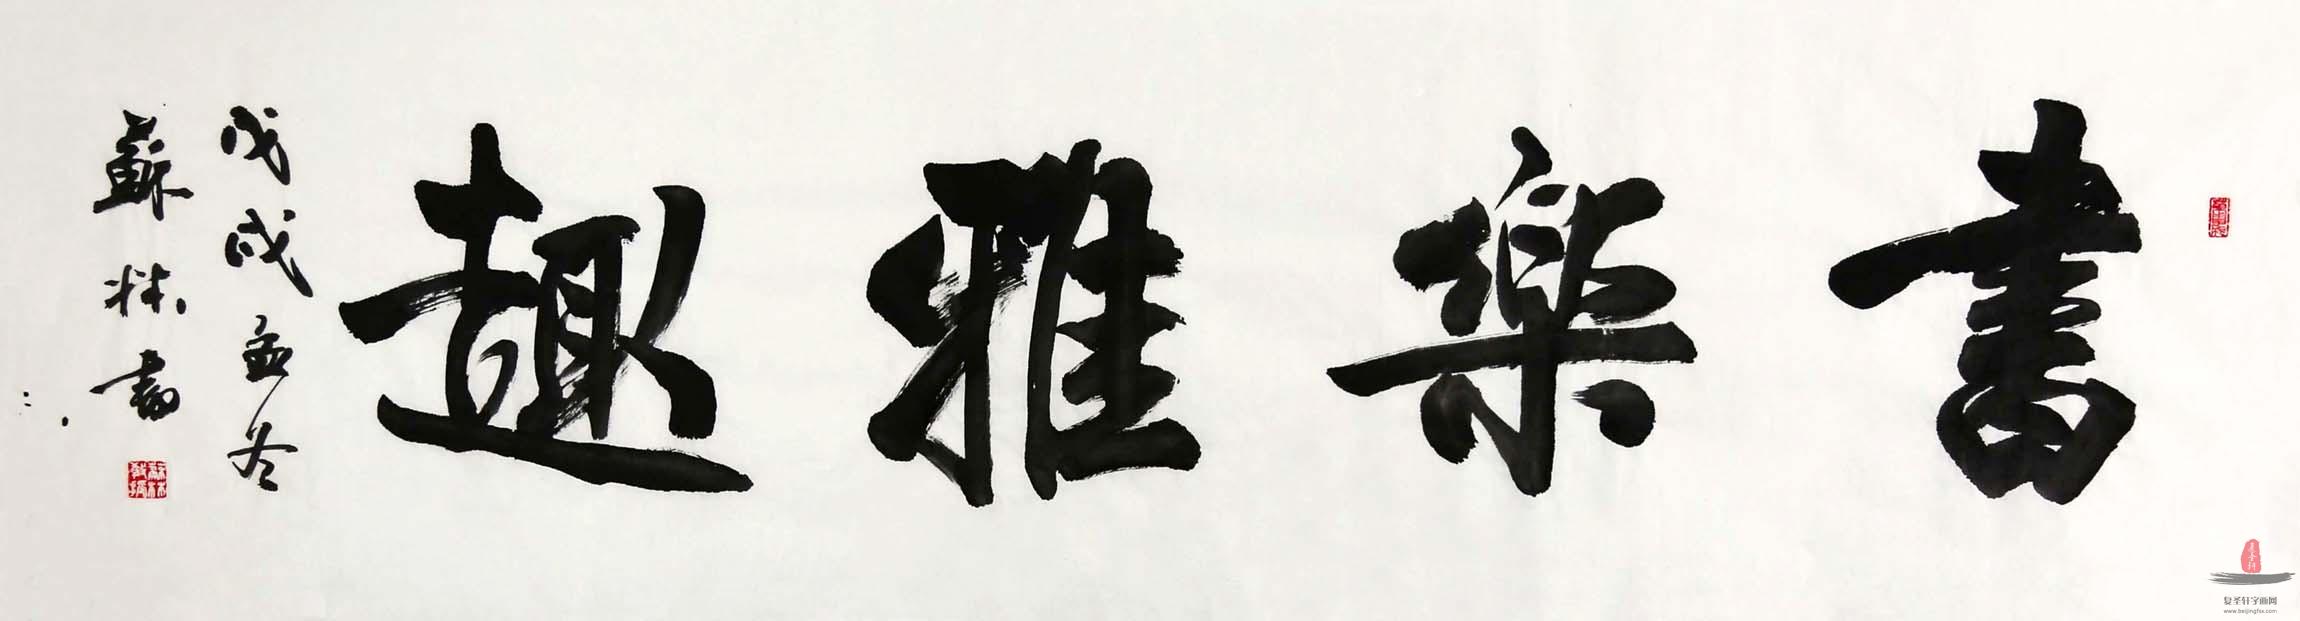 書樂雅趣
戊戌孟冬
蘇林書
复圣轩字画网
www.beijingfsx.com